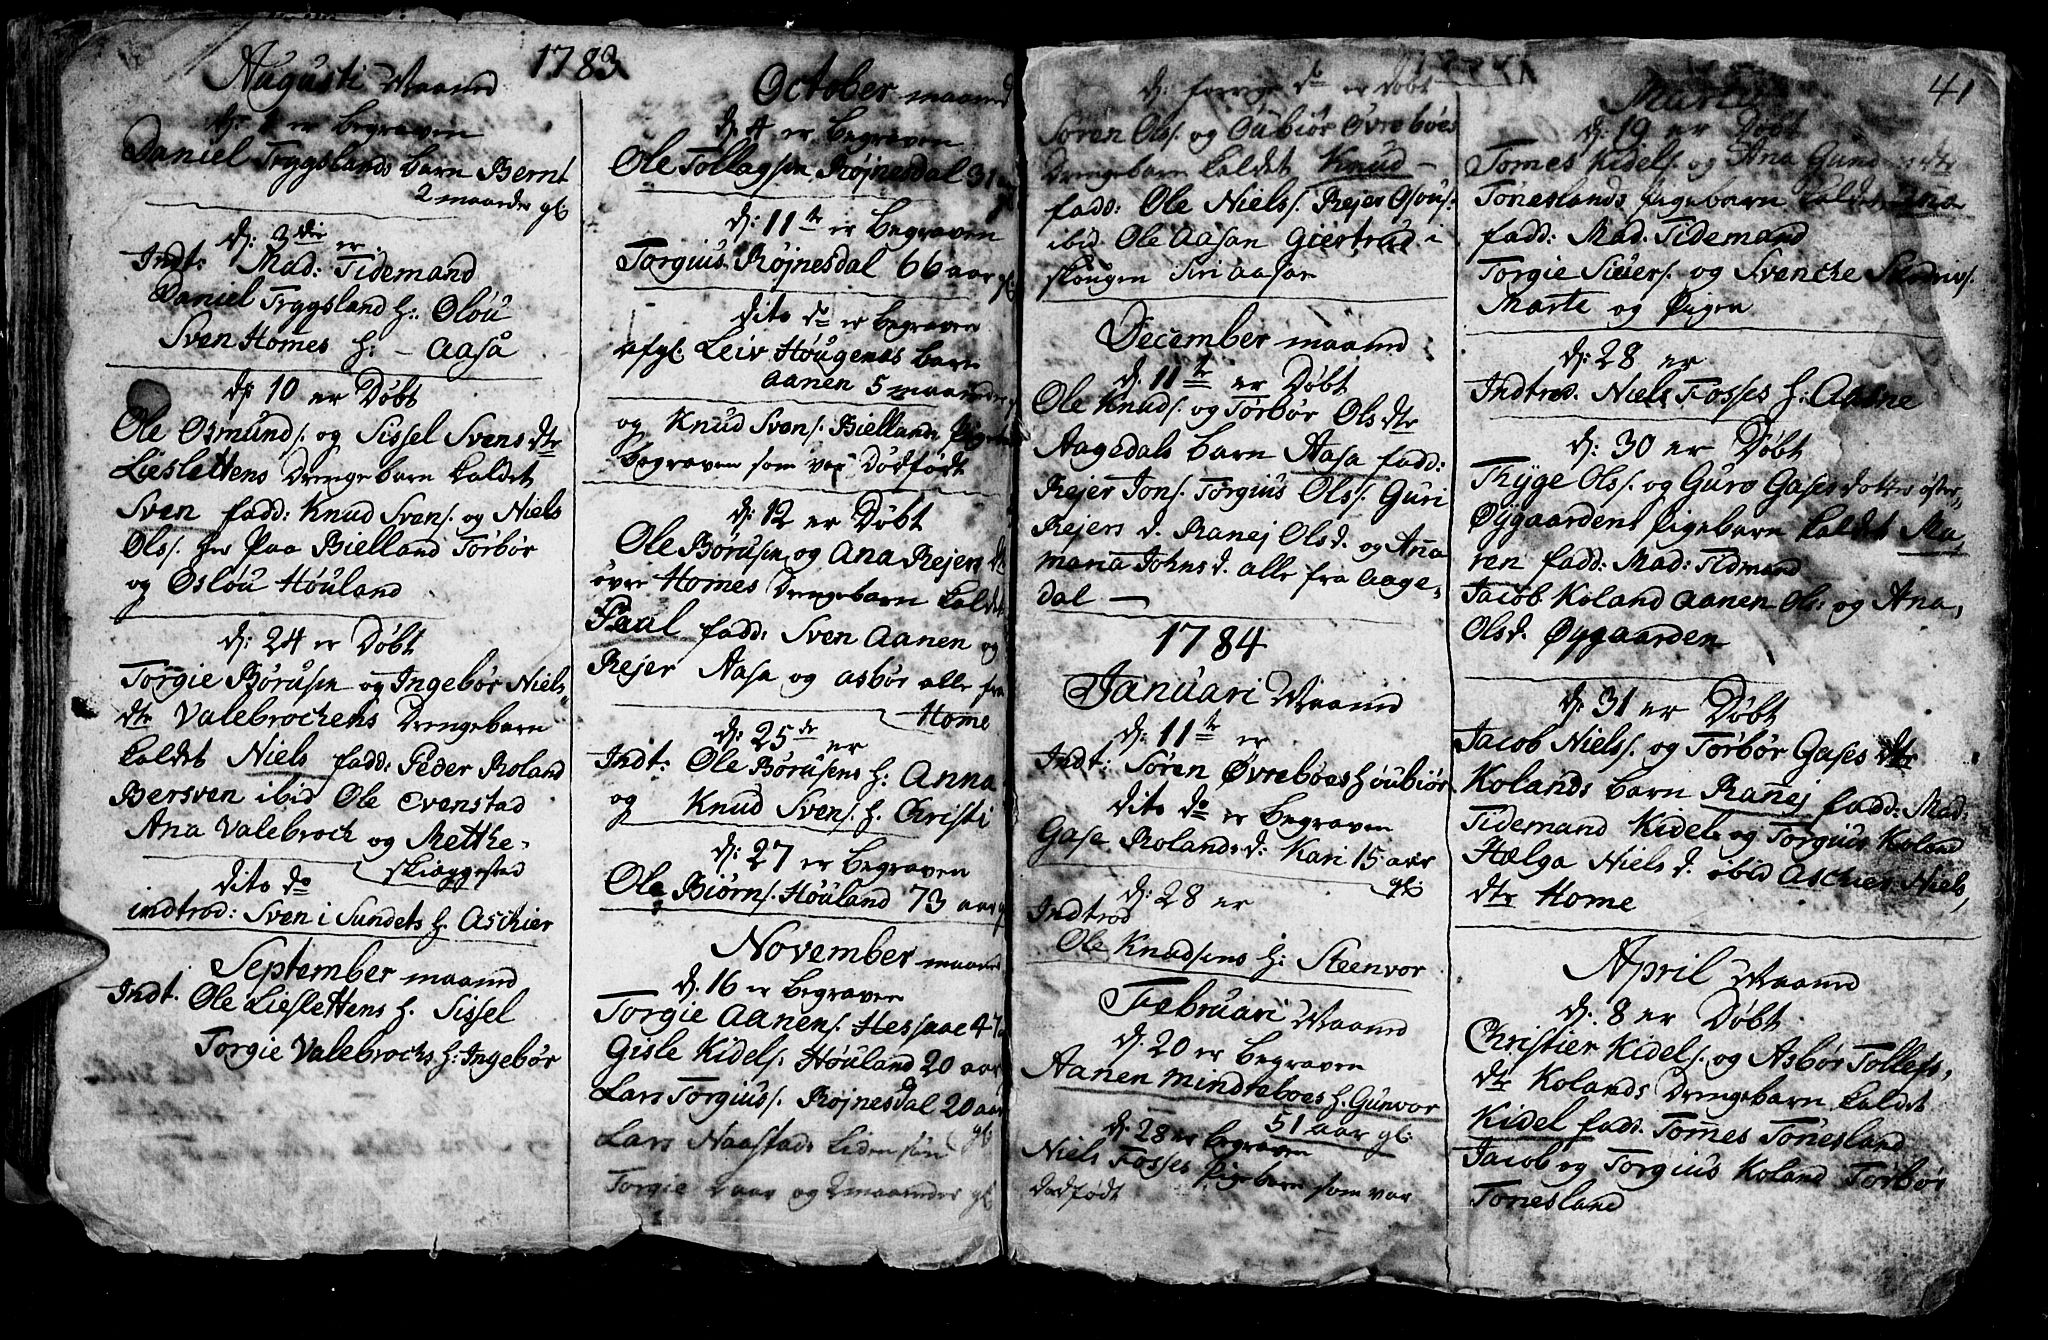 1783
Augusti Maaned
d: 1 er begraven
Daniel Tryggslands barn Bernt
2 maander gl:
d: 3die er
Indt: Mad: Tidemand
Daniel Tryggsland h: Oloü
Sven Homes h: - Aasa
d: 10 er Døbt
Ole Osmunds: og Sissel Svens dtr
Lieslettens Drengebarn kaldet
Sven fadd: Knud Svens: og Niels
Ols: paa Bielland Torbør
og Osloü Hoüland
d: 24 er Døbt
Torgie Børusen og Ingebør Niels
dtr Valebrochens Drengebarn
kaldet Niels fadd: Peder Roland
Bersven ibid Ole Evenstad
Ana Valebroch og Mette
Skiæggestad
dito do
indtrod: Sven i Sundets h. Aschier
September maaned
Indt. Ole Lieslettens h. Sissel
Torgie Valebrochs h: Ingebør
October maaned
d: 4 er begraven
Ole Tollagsen Røjnesdal 31
d: 11te er begraven
Torgius Røjnesdal 66 aar gl:
dito do er begraven
afgl. Leiv Hoügenes barn
Aanen 5 maander
og Knud Svens: Bielland
begraven som var Dødfødt
d: 12 er Døbt
Ole Børusen og Ana Rejers d
øvre Homes Drengebarn kaldet
Paal fadd: Sven Aanen og
Rejer Aasa og asbør alle fra
Home
d: 25de er
Indt: Ole Børusens h: Anna
og Knud Svens: h. Christi
d: 27 er begraven
Ole Biørns: Hoüland 73 aar
November maaned
d: 16 er begraven
Torgie Aanens: Hessaae 47
Gisle Kidels: Hoüland 20 aar
Lars Torgius: Røjnesdal 20 aar
gl:
Lars Naastads liden søn
Torgie 2 aar og 2 maaneder gl:
41
d: forrige do er Døbt
Søren Ols: og Gubiør Øvrebøes
Drengebarn kaldet Knud -
fadd: Ole Niels: Rejer
ibid Ole Aasan Giertrud i
skougen Siri aasan
December maaned
d: 11te er Døbt
Ole Knuds: og Torbør Ols dtr
Aagedals barn Aasa fadd:
Rejer Jons: Torgius Ols: Guri
Rejers d. Ranej Ols d. og Ana
maria Johns d. alle fra Aage,
dal -
1784
Januari Maaned
d: 11te er
Indt: Søren Øvrebøes h Gubiør
dito do er begraven
Gasa Rolands d: Kari 15 aar
gl:
d: 28 er
Indtrod
Ole Knudsens h: Steenvor
Februari Maaned
d: 20 er begraven
Aanen Mindrebøes h. Gunvor
51 aar gl:
d: 28 er begraven
Niels Fosses Pigebarn som var
dødfødt
Martii
d: 19 er Døbt
Tomes Kidels: og Ana
Toneslands pigebarn kaldet Ana
fadd: Mad: Tidemand
Torgie Siuers: og Svenche
Marte og Pigen
d: 28 er
Indtrod. Niels Fosses h: Aasne
d: 30 er Døbt
Thyge Ols: og Guro Gases dotter øster,
Øygaardens pigebarn kaldet Ma,
ren fadd: Mad: Tidmand
Jacob Koland Aanen Ols: og Ana,
Ols d. Øygaarden
d: 31 er Døbt
Jacob Niels: og Torbør Gases dtr
Kolands barn Ranej fadd: Mad:
Tidemand Kidel og Torgius Koland
Hælga Niels d. ibid Aschier Niels,
dtr Home
April Maaned
d: 8 er Døbt
Christier Kidels: og Asbør Tollefs,
dtr Kolands Drengebarn kaldet
Kidel fadd. Tomes Tonesland
Jacob og Torgius Koland Torbør
Tonesland